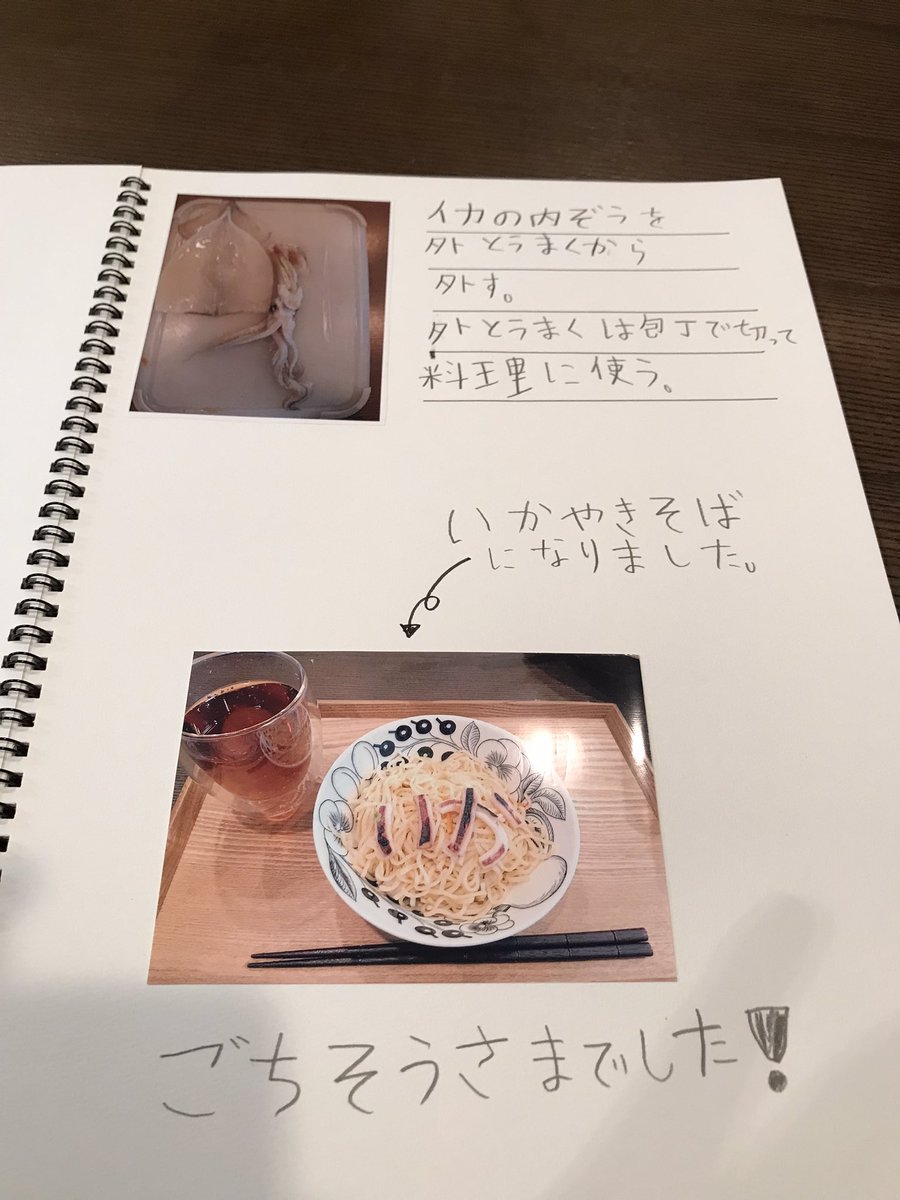 イカの内ぞうを
外とうまくから
外す。
外とうまくは包丁で切って
料理に使う。
いかやきそば
になりました。
ごちそうさまでした!